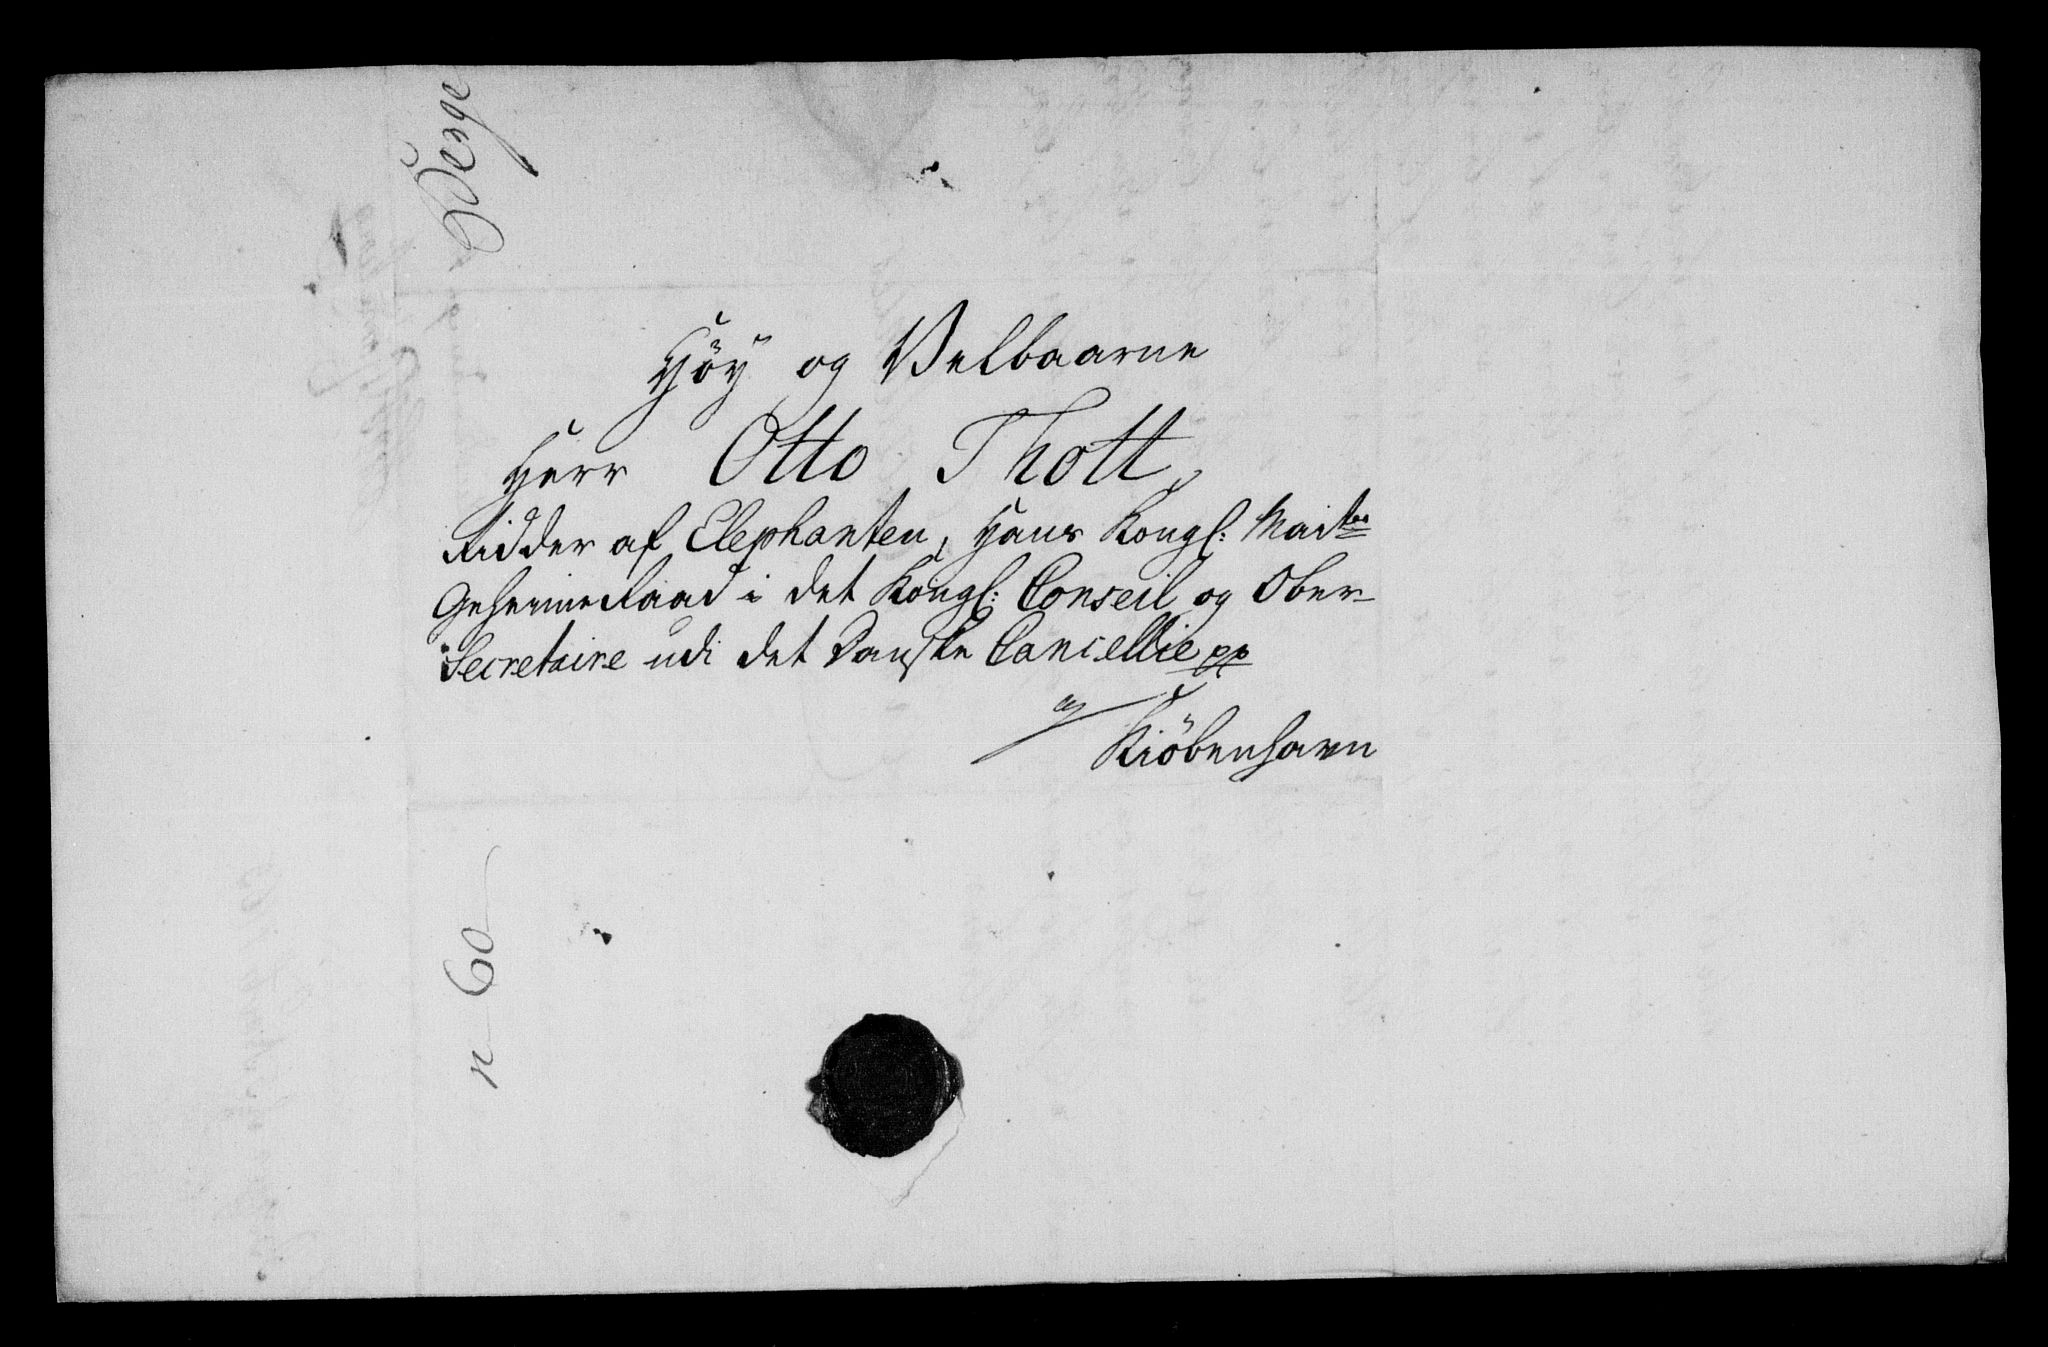 Høÿ og Velbaarne
Herr Otto Thott,
Ridder af Elephanten, Hans Kongl: Maits
Geheimeraad i det Kongl: Conseil og Ober-
Secretaire udi det Danske Cancellie pp
Kiöbenhavn
n 60